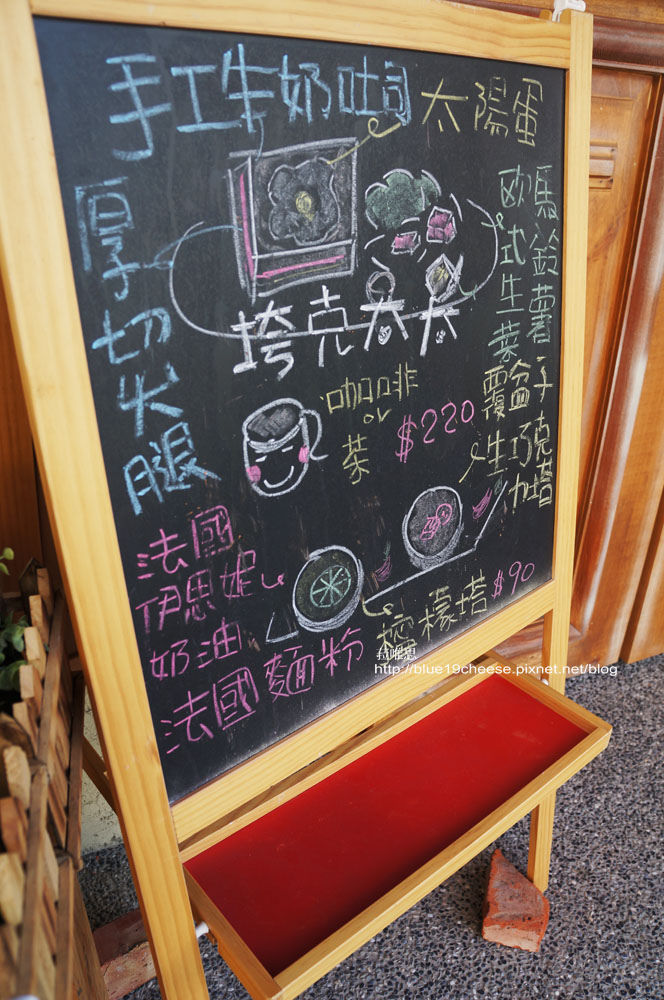 手工牛奶吐司
太陽蛋
厚切火腿
歐式生菜
馬鈴薯
垮克太太
咖啡
or
茶
$220
覆盆子
生巧克力塔
法國
伊思妮
奶油
法國麵粉
檸檬塔
$90
http://blue19cheese.pixnet.net/blog